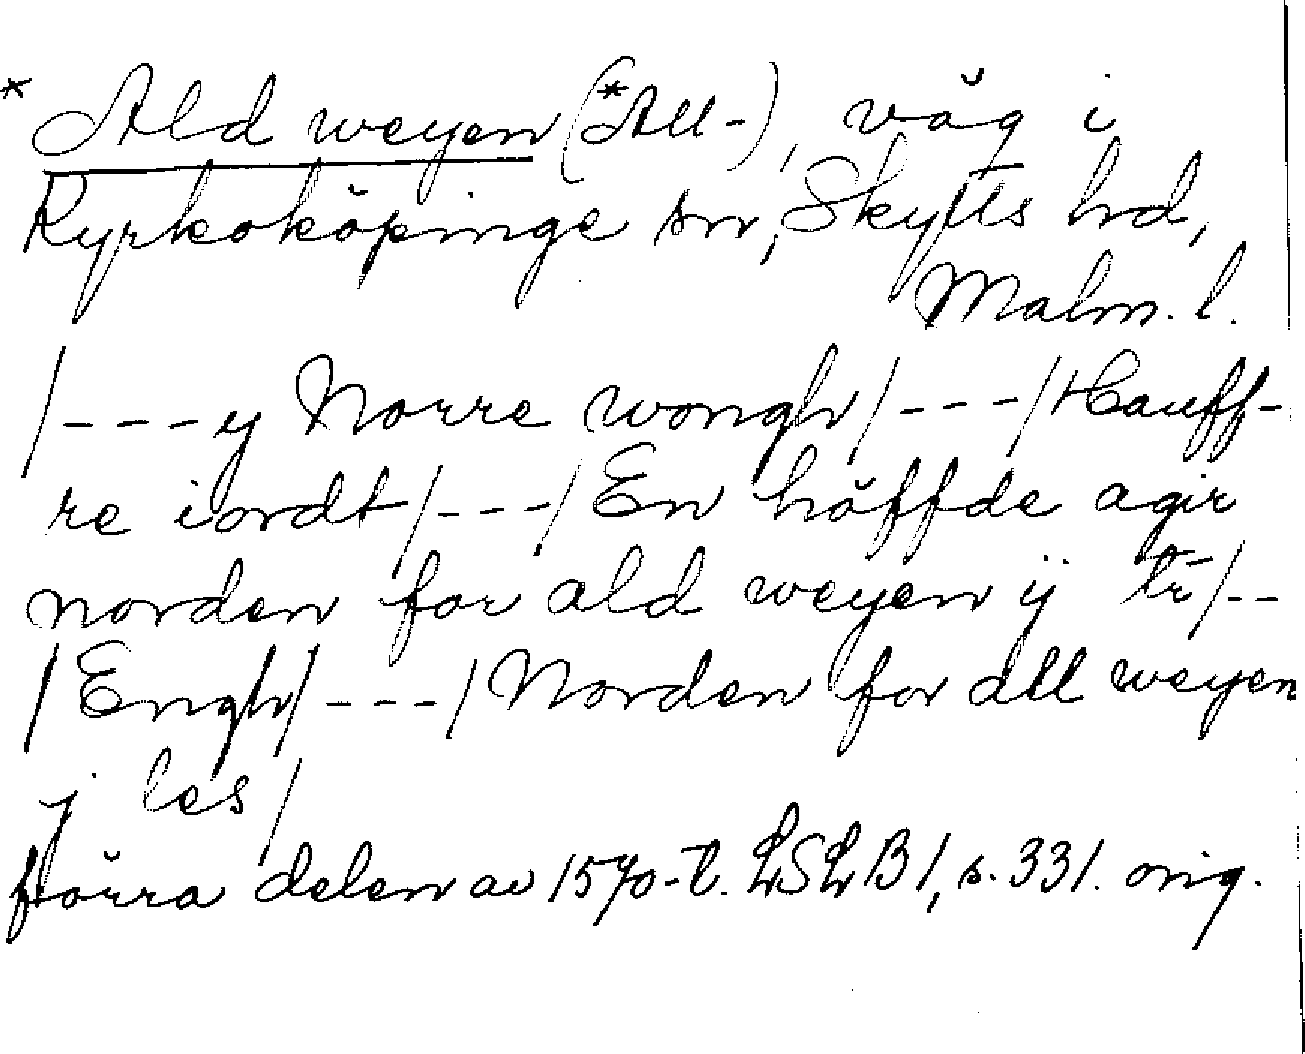 * Ald weyen (*All-), väg i
Kyrkoköpinge sn, Skytts hd,
Malm. l.
/---y Norre wongh/---/Hauff-
re iordt/---/En höffde agir
norden for ald weyen ÿ tr/--
/Engh/---/Norden for all weyen
j les/
förra delen av 1570-t. LSLB1, s. 331. orig.